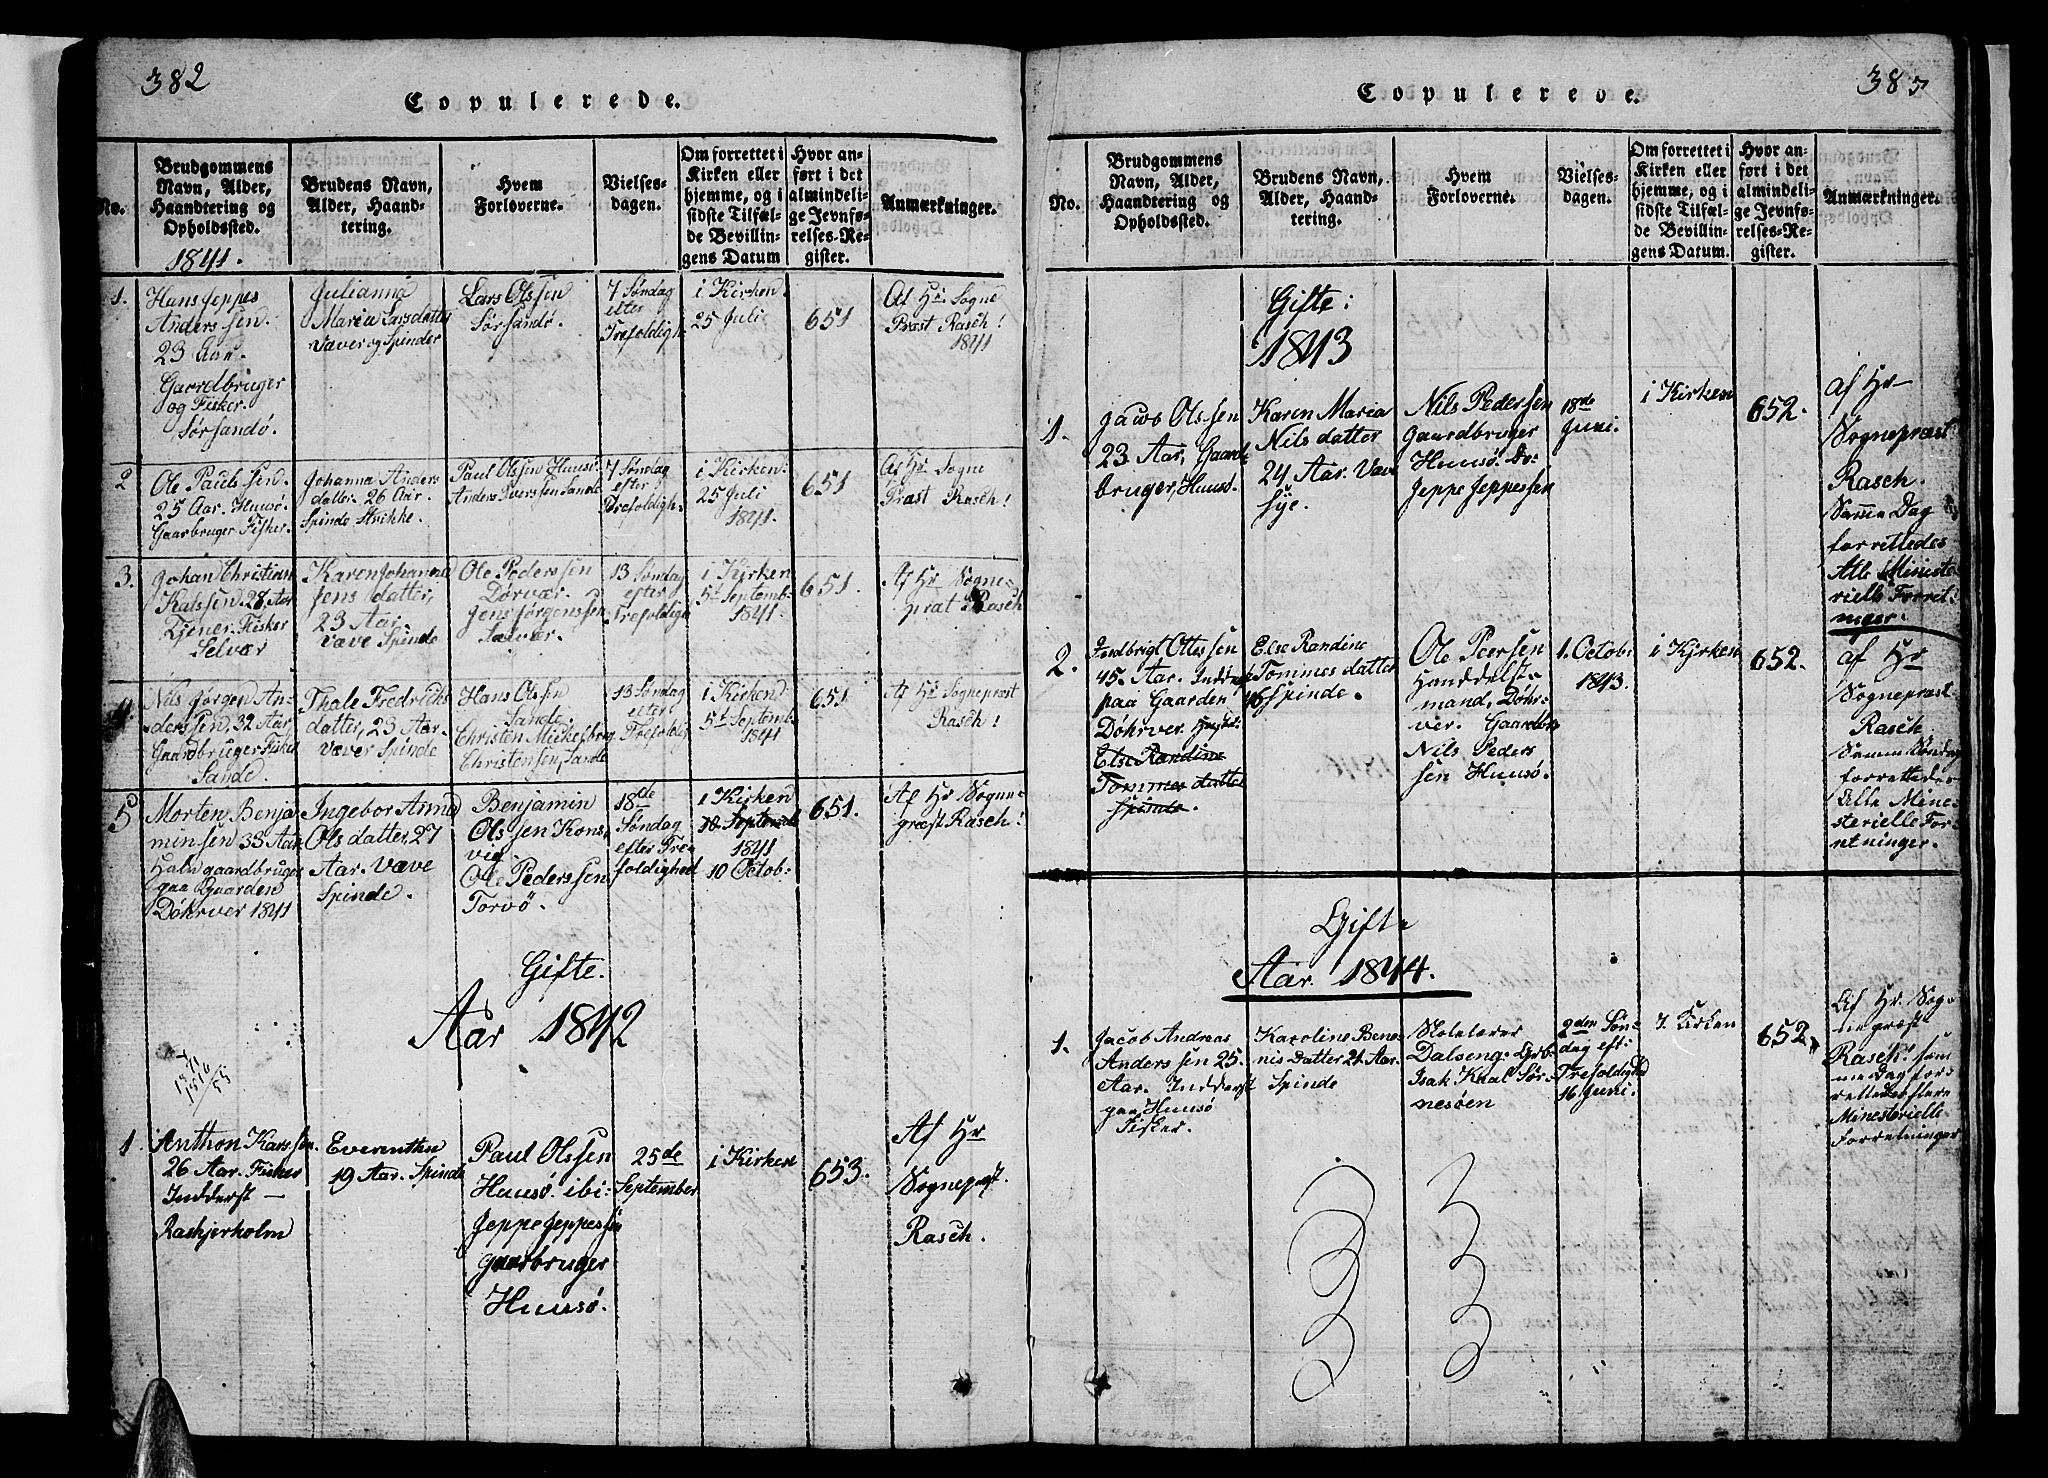 382
Copulerede.
No.
Brudgommens
Navn, Alder,
Haandtering og
Opholdssted.
1841.
Brudens Navn,
Alder, Haand-
tering.
Hvem
Forloverne.
Vielses-
dagen.
Om forrettet i
Kirken eller
hjemme, og i
sidste Tilfæl-
de Bevillin-
gens Datum
Hvor an-
ført i det
almindeli-
ge Jevnfø-
relses-Re-
gister.
Anmærkninger.
1.
Hans Jeppes
Anderssen.
23 Aar
Gaardbruger
og Fisker.
Sørsandø.
Julianna
Maria Larsdatter
Væver og Spinder
Lars Olssen
Sørsandø.
7 Søndag
efter
Trefoldigh
i Kirken.
25 Juli
651
Af Hr. Sogne
Præst Rasch!
1841
2
Ole Paulssen.
25 Aar. Huusø.
Gaarbruger Fisker
Johanna Anders
datter 26 Aar.
Spinde Strikke.
Paul Olssen Huusø.
Anders Iverssen Sande
7 Søndag
efter
Trefoldigh.
i Kirken.
25 Juli
1841.
651
Af Hr Sogne
Præst Rasch!
3.
Johan Christian
Kalssen. 28 Aar
Tjener. Fisker
Selvær
Karen Johanna
Jens datter,
23 Aar.
væve Spinde
Ole Pederssen
Dørvær.
Jens Jørgenssen
Sælvær.
13 Søndag
efter
Trefoldigh
i Kirken
5t Septemb
1841.
651.
Af Hr Sogne-
præt Rasch
4.
Nils Jørgen An-
derssen, 32 Aar
Gaardbruger Fisker
Sande.
Thale Fredrichs
datter, 23 Aar.
Væver Spinde
Hans Olssen
Sande.
Christen Mickelborg
Christensen, Sande
13 Søndag
efter
Trefoldig
i Kirken
5t Septemb
1841
651
Af Hr Sognepræst
Rasch!
5
Morten Benja
minsen 33 Aar
Halv gaardbruger
paa Gaarden
Døhrver 1841
Ingebor Anna
Olsdatter, 27
Aar. Væve
Spinde.
Benjamin
Olssen Kons
vig
Ole Pederssen
Torvø.
18de
Søndag
efter Tre
foldighed
i Kirken
10 Septembe
1841
10 Octob:
651.
Af Hr Sogne-
præst Rasch!
Gifte.
Aar 1842
1
Anthon Karssen
26 Aar. Fisker
Indderst —
Raskjerholm
Everenthen
19 Aar. Spinde
Paul Olssen
Huusø. ibi:
Jeppe Jeppessen
gaarbruger
Huusø.
25de
September
i Kirken
653.
Af Hr
Sognepræst.
Rasch.
Copulerede.
No.
Brudgommens
Navn, Alder,
Haandtering og
Opholdssted.
Brudens Navn,
Alder, Haand-
tering.
Hvem
Forloverne.
Vielses-
dagen.
Om forrettet i
Kirken eller
hjemme, og i
sidste Tilfæl-
de Bevillin-
gens Datum.
Hvor an-
ført i det
almindeli-
ge Jevnfø-
relses-Re-
gister.
Anmærkninger.
Gifte:
1843
1.
Jacob Olssen
23 Aar, Gaard
bruger, Huusø.
Karen Maria
Nils datter
24 Aar. Væve
sye.
Nils Pederssen
Gaardbruger
Huusø. Do:
Jeppe Jeppessen
18de
Juni.
i Kirken
652.
af Hr
Sognepræst
Rasch.
Samme Dag
forrettedes
Alle Ministe
rielle Forret
ninger.
2.
Fredbrigt Ottessen
45. Aar. Indderst
paa Gaarden
Døhrver
Else Randine
Tommes datter
Spinde.
Else Randine
Tommes datter
46 Spinde.
Ole Peersen
Handdels
mand, Døhr
ver.
Nils Peders
sen Huusø.
1. Octob:
1843.
i Kjrken
652.
af Hr
Sognepræst
Rasch
Samme Søndag
forrettedes
Alle Mine
sterielle For-
retninger.
Gifte
Aar 1844.
1.
Jacob Andreas
Anderssen 25.
Aar. Indderst
paa Huusø
Fisker.
Karoline Bene
nis Datter 21. Aar.
Spinde
Skolelærer
Dalseng
Isak Kaal Sør-
nesøen
2den Søn-
dag eft:
Trefoldighed
16 Juni.
I. Kirken
652.
Af Hr. Sog-
nepræst
Rasch. sam
me Dag for-
rettedes flere
Ministerielle
Forretninger